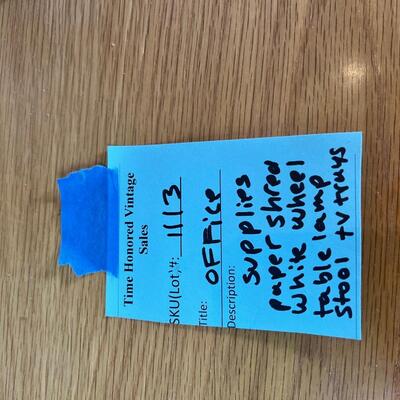 Time Honored Vintage
Sales
SKU(Lot)#: 1113
Title: OFFice
Description:
Supplies
paper shred
white wheel
table lamp
stool tv trays